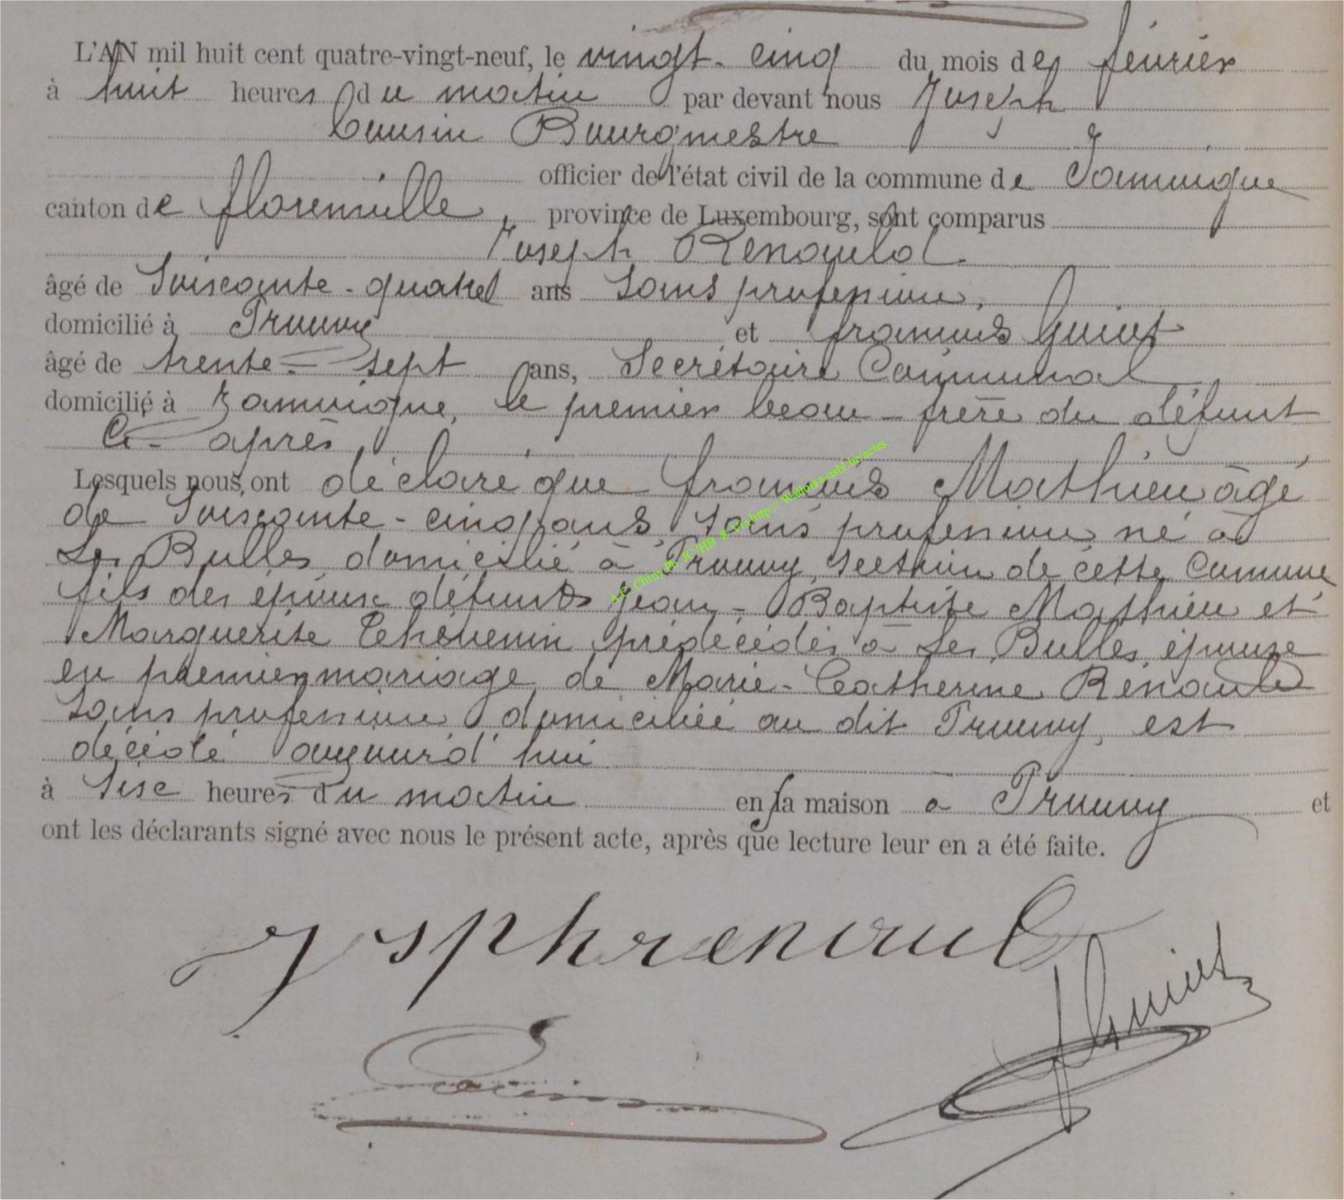 L'AN mil huit cent quatre-vingt-neuf, le vingt-cinq du mois de février
à huit heures du matin par devant nous Joseph
Cousin Bourgmestre
officier de l'état civil de la commune de Jamoigne
canton de florenville, province de Luxembourg, sont comparus
Joseph Renauld
âgé de Soixante-quatre ans Sans profession,
domicilié à Prouvy et françois Guiot
âgé de trente-sept ans, Secrétaire Communal
domicilié à Jamoigne, le premier beau-frère du défunt
Ci-après
Lesquels nous ont déclaré que françois Mathieu âgé
de Soixante-cinq ans, Sans profession né à
Les Bulles domicilié à Prouvy, section de cette Commune
fils des époux défunts Jean-Baptiste Mathieu et
Marguerite Thévenin prédécédés à Les Bulles, époux
en premier mariage de Marie-Catherine Renauld
Sans profession domiciliée au dit Prouvy, est
décédé aujourd'hui
à Six heures du matin en sa maison à Prouvy et
ont les déclarants signé avec nous le présent acte, après que lecture leur en a été faite.
jsph renauld
Cousin
f Guiot